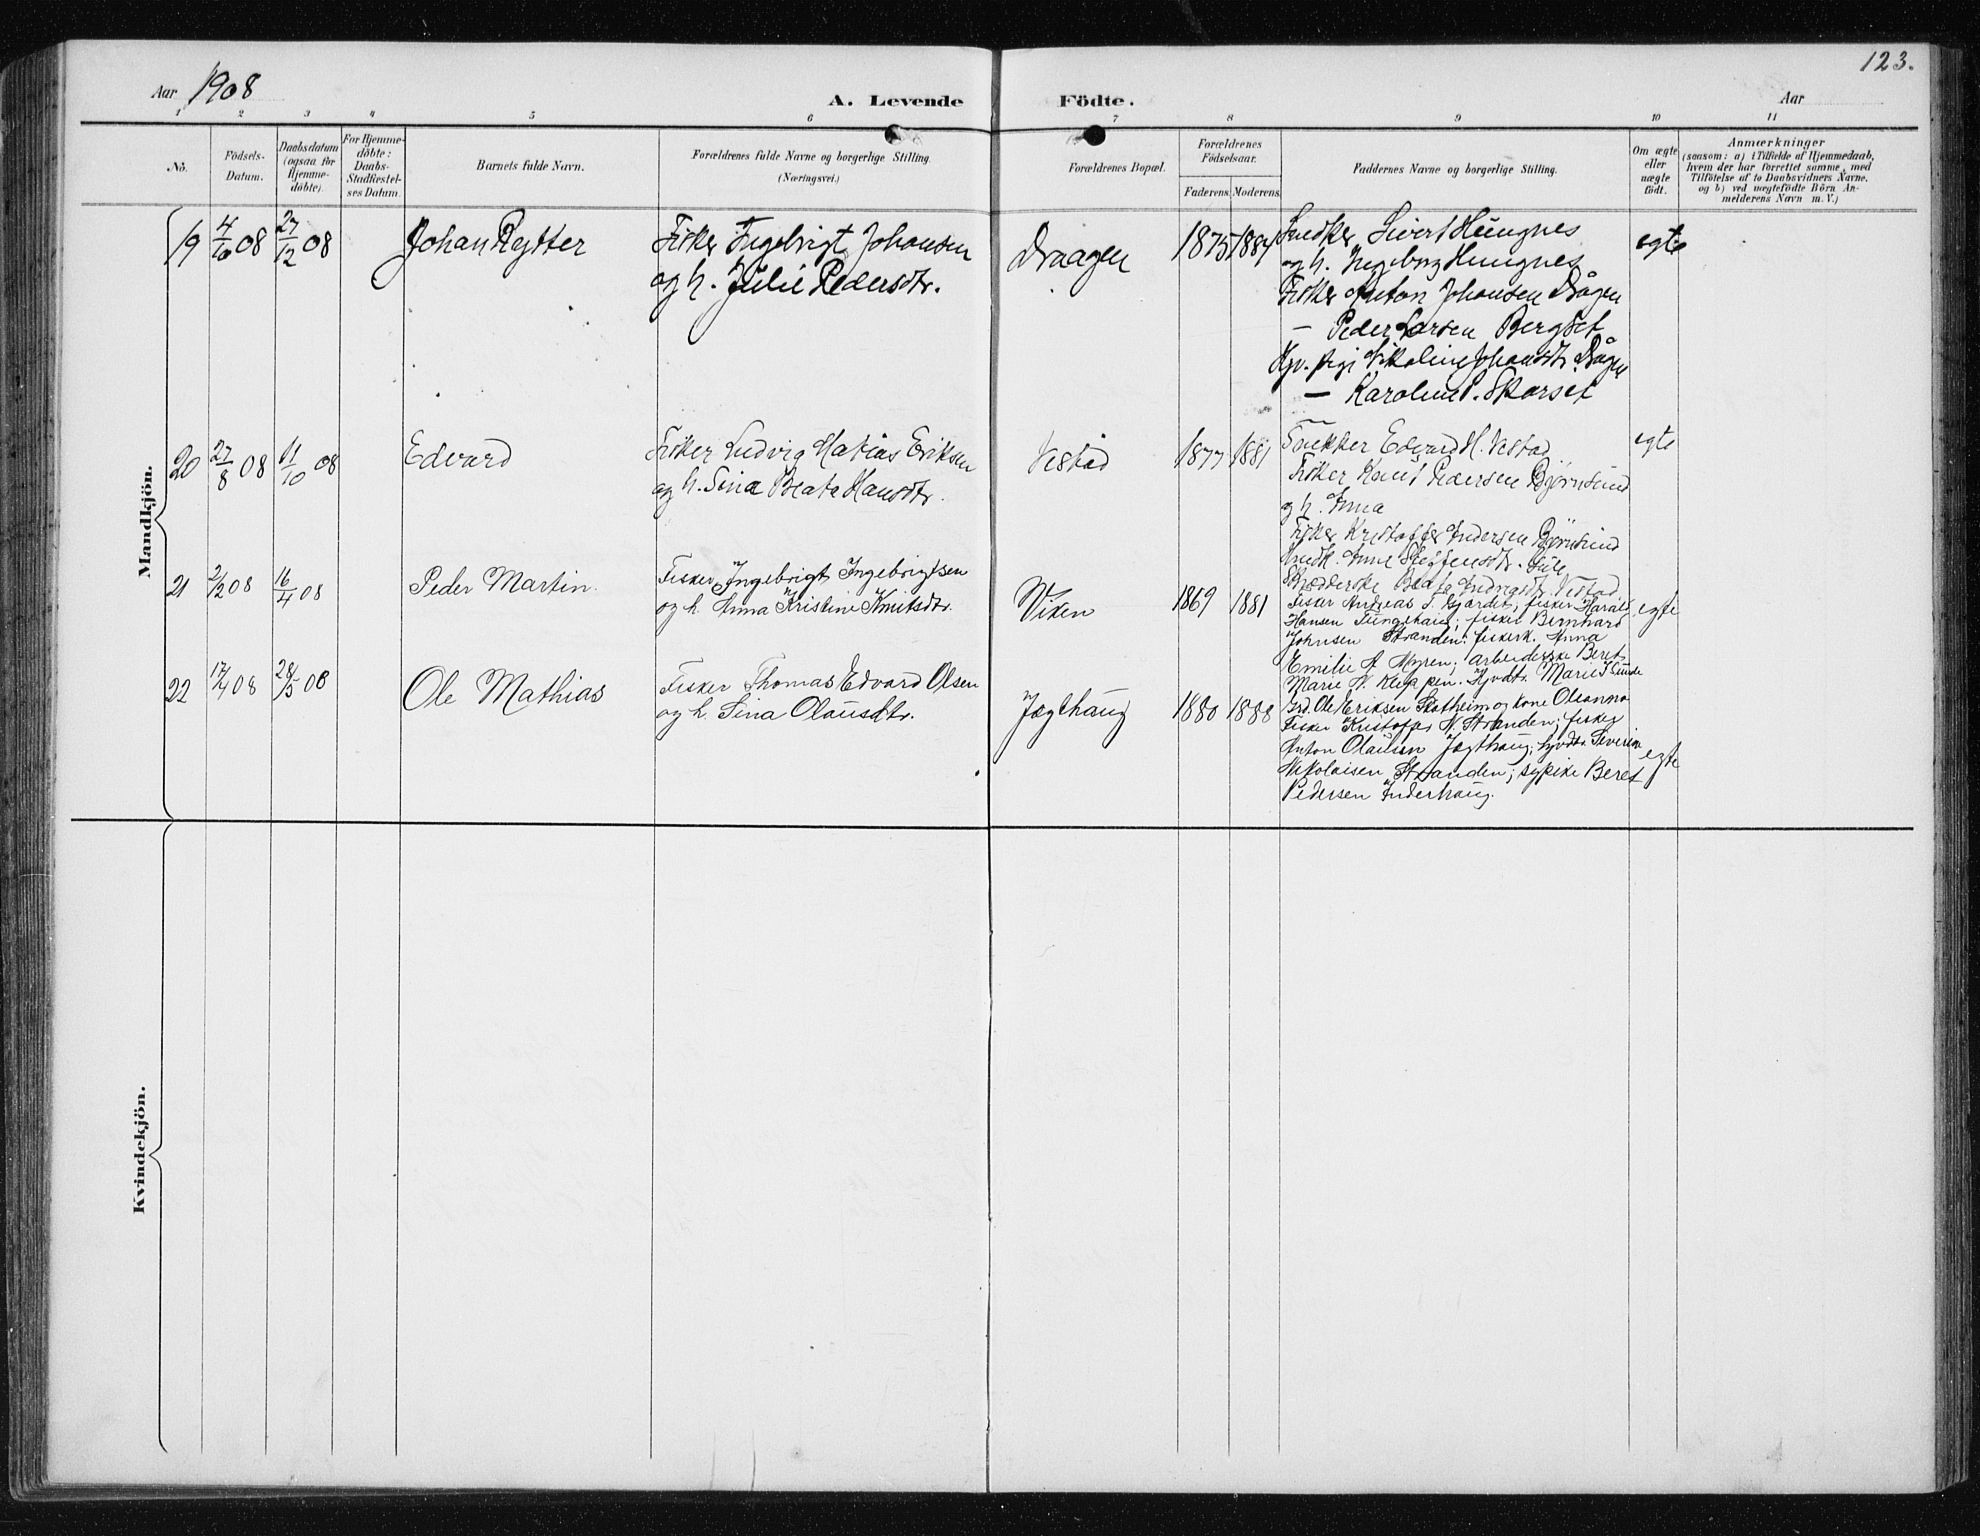 123.
Aar 1908
A. Levende Födte.
Aar
1 2 3 4 5 6 7 8 9 10 11
No.
Födsels-Datum.
Daabsdatum (ogsaa for Hjemme-döbte).
For Hjemme-döbte: Daabs-Stadfæstel-ses Datum.
Barnets fulde Navn.
Forældrenes fulde Navne og borgerlige Stilling. (Næringsvei.)
Forældrenes Bopæl.
Forældrenes Födselsaar.
Faderens. Moderens.
Faddernes Navne og borgerlige Stilling.
Om ægte eller uægte födt.
Anmærkninger
(saasom: a) i Tilfælde af Hjemmedaab,
hvem der har forrettet samme, med
Tilföielse af to Daabsvidners Navne.
og b) ved uægtefödte Börn An-
melderens Navn m. V.)
Mandkjön.
19 4/10 08 27/12 08 Johan Rytter
Fisker Ingebrigt Johansen
og h. Julie Pedersdtr.
Draagen 1875 1884
Snedker Sivert Hungnes
og h. Ingeborg Hungnes
Fisker Anton Johansen Dågen
— Peder Larsen Bergset
Gjv. pige Nikoline Johansdtr.
— Karoline P. Skarset
egte
20 27/8 08 11/10 08 Edvard
Fisker Ludvig Matias Eriksen
og h. Sina Beata Hansdtr.
Vestad 1877 1881
Edvard H. Vestad
Fisker Knut Pedersen Bjørnsund
og h. Anna
Fisker Kristoffer Andersen Bjørnsund
Beata Vestad
egte
21 2/12 08 16/4 08 Peder Martin.
Fisker Ingebrigt Ingebrigtsen
og h. Anna Kristine Knutsdtr.
Viken 1869 1881
Fisker Andreas T. Gjærdet; fisker Harald
Hansen Tungehaug; fisker Bernhard
Johnsen Stranden; fiskerk. Anna
Emilie A. Myren; arbeiderske Beret
Marie N. Kleppen. Gjvdtr. Marie K
egte
22 17/4 08 28/5 08 Ole Mathias
Fisker Thomas Edvard Olsen
og h. Sina Olausdtr.
Jægthaug 1880 1888
Grd. Ole Eriksen Skotheim og kone Oleanna
Fisker Kristoffer N. Stranden; fisker
Anton Olausen Jægthaug; gjvdtr. Severine
Nikolaisen Stranden; sypike Beret
Pedersen Inderhaug.
egte
Kvindekjön.